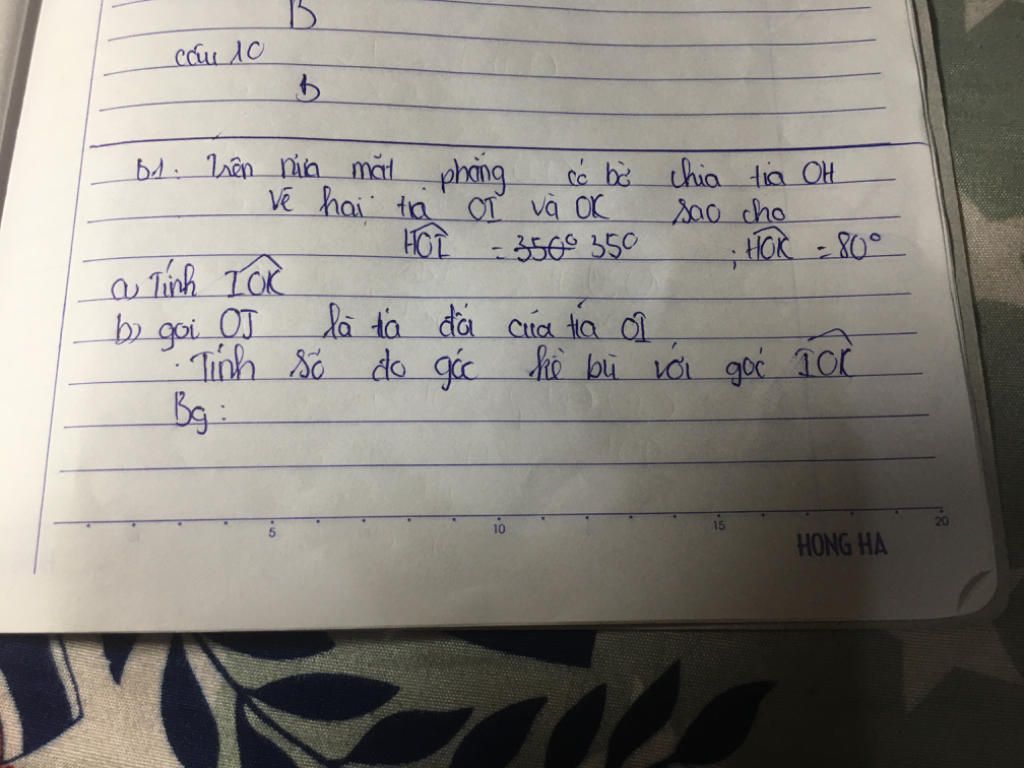 B
câu 10
D
b1. Trên nửa mặt phẳng có bờ chứa tia OH
vẽ hai tia OI và OK sao cho
HOI = 350° 350 ; HOK = 80°
a) Tính IOK
b) gọi OJ là tia đối của tia OI
. Tính số đo góc kề bù với góc IOK
Bg :
5 10 15 20
HONG HA